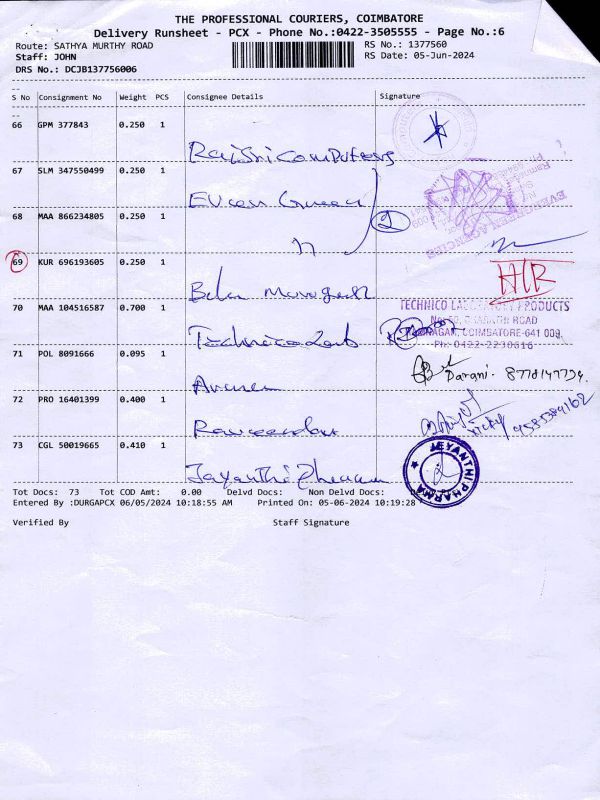 THE PROFESSIONAL COURIERS, COIMBATORE
Delivery Runsheet - PCX - Phone No.:0422-3505555 - Page No.:6
Route: SATHYA MURTHY ROAD
RS No.: 1377560
Staff: JOHN
RS Date: 05-Jun-2024
DRS No.: DCJB137756006
S No Consignment No Weight PCS Consignee Details Signature
66 GPM 377843 0.250 1
Rajshri computers
67 SLM 347550499 0.250 1
68 MAA 866234805 0.250 1
2
EVERGREEN AGENCIES
69 KUR 696193605 0.250 1
70 MAA 104516587 0.700 1
TECHNICO LABORATORY PRODUCTS
COIMBATORE-641 009.
Ph: 0422-2230616
Technico Lab
71 POL 8091666 0.095 1
Darani. 8778147734.
72 PRO 16401399 0.400 1
73 CGL 50019665 0.410 1
JEYANTHI PHARMA
Jayanthi Pharma
Tot Docs: 73 Tot COD Amt: 0.00 Delvd Docs: Non Delvd Docs:
Entered By :DURGAPCX 06/05/2024 10:18:55 AM Printed On: 05-06-2024 10:19:28
Verified By Staff Signature